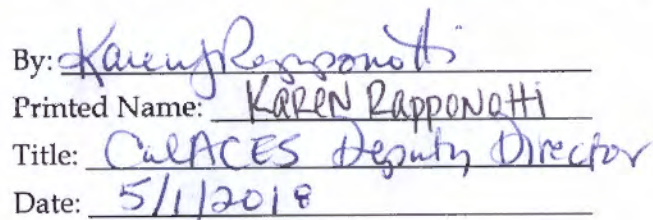 By: Karen J Rapponotti
Printed Name: KAREN RAPPONOTTI
Title: CalACES Deputy Director
Date: 5/1/2018